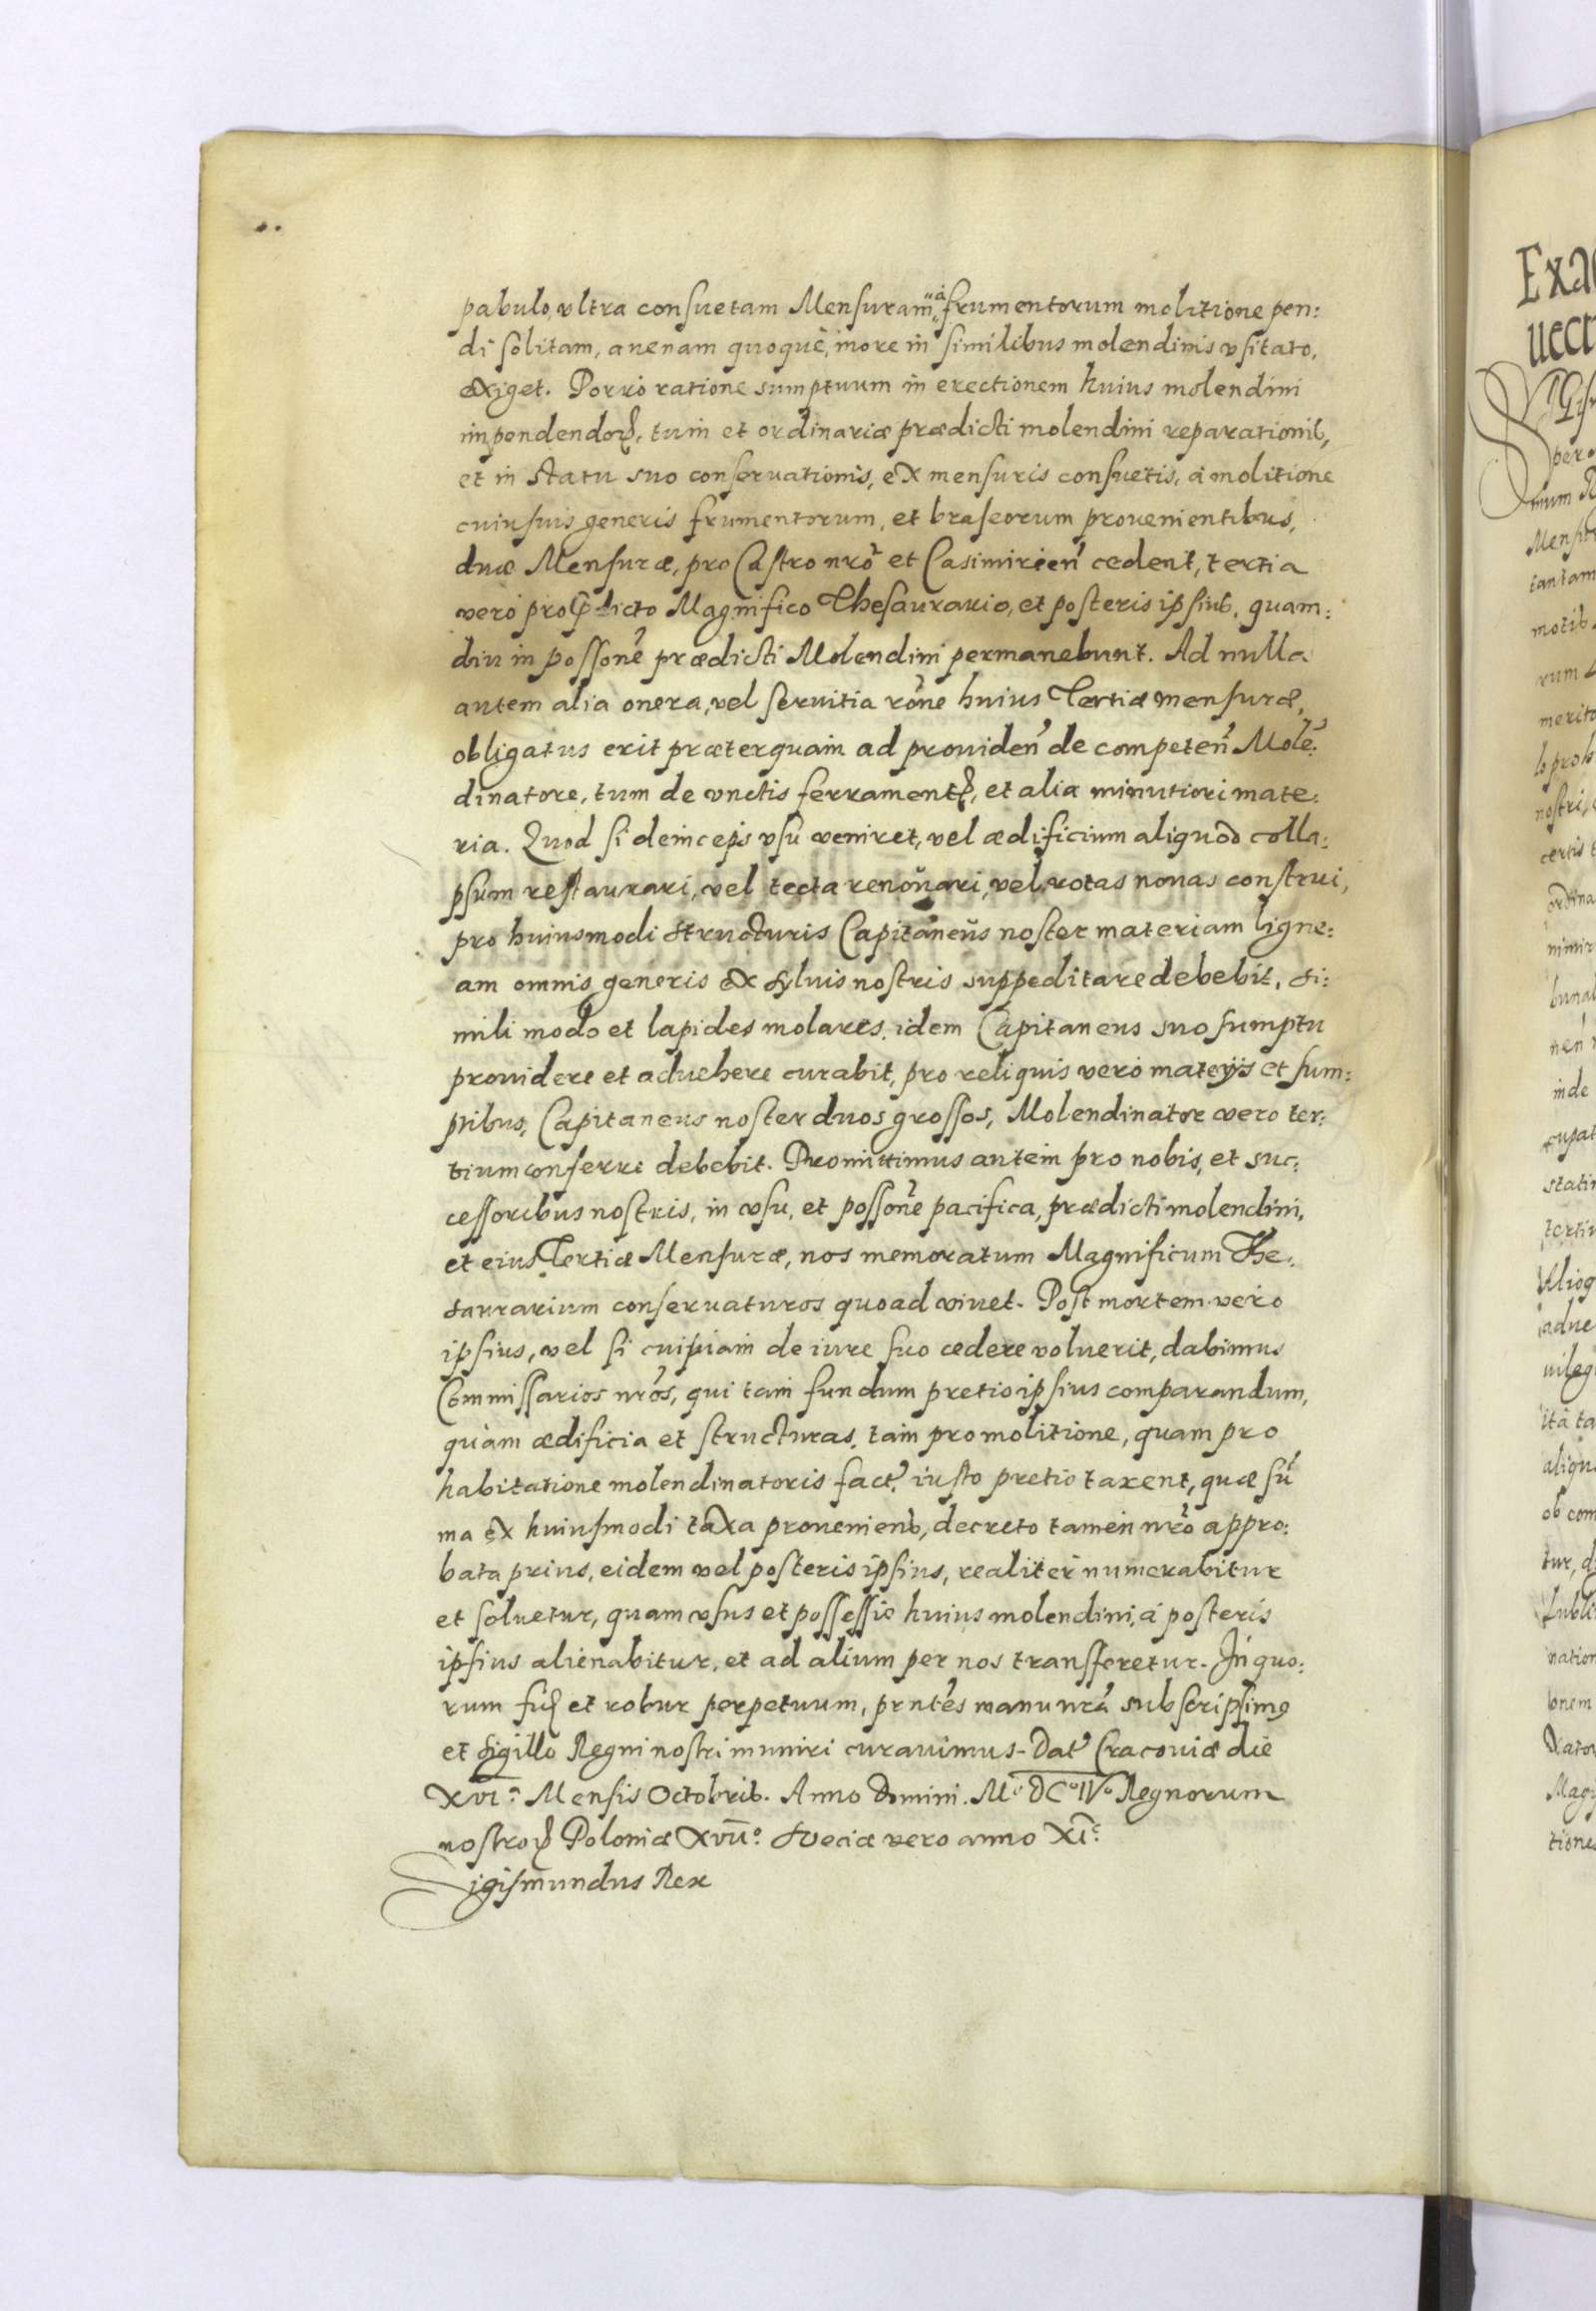 pabulo, vltra consuetam Mensuram à frumentorum molitione pen:
di solitam, auenam quoque, more in similibus molendinis vsitato,
exiget. Porro ratione sumptuum in erectionem huius molendini
impendendoꝝ, tum et ordinariæ prædicti molendini reparationis,
et in statu suo conseruationis, ex mensuris consuetis, à molitione
cuiusuis generis frumentorum, et braseorum prouenientibus,
duæ Mensuræ, pro Castro nrõ et Casimirien̾ cedent, tertia
vero pro p̄dicto Magnifico Thesaurario, et posteris ipsius, quam:
diu in possonẽ prædicti Molendini permanebunt. Ad nulla
autem alia onera, vel seruitia rõne huius Tertiæ mensuræ,
obligatus erit præterquam ad prouiden̾ de competen̾ Molẽ:
dinatore, tum de vnctis ferramentꝭ, et alia minutiori mate:
ria. Quod si deinceps vsu veniret, vel ædificium aliquod colla:
psum restaurari, vel tecta renouari, vel rotas nouas construi,
pro huiusmodi structuris Capitaneus noster materiam ligne:
am omnis generis ex syluis nostris suppeditare debebit, si:
mili modo et lapides molares, idem Capitaneus suo sumptu
prouidere et aduehere curabit, pro reliquis vero materijs et sum:
ptibus, Capitaneus noster duos grossos, Molendinator vero ter:
tium conferre debebit. Promittimus autem pro nobis, et suc:
cessoribus nostris, in vsu, et possonẽ pacifica, prædicti molendini,
et eius Tertiæ Mensuræ, nos memoratum Magnificum The:
saurarium conseruaturos quoad viuet. Post mortem vero
ipsius, vel si cuipiam de iure suo cedere voluerit, dabimus
Commissarios nrõs, qui tam fundum pretio ipsius comparandum,
quàm ædificia et structuras, tam pro molitione, quam pro
habitatione molendinatoris fact̾, iusto pretio taxent, quæ sũ
ma ex huiusmodi taxa proueniens, decreto tamen nrõ appro:
bata prius, eidem vel posteris ipsius, realiter numerabitur
et soluetur, quam vsus et possessio huius molendini, à posteris
ipsius alienabitur, et ad alium per nos transferetur. In quo:
rum fidꝫ et robur perpetuum, prñtes manu nrã subscripsimꝰ
et sigillo Regni nostri muniri curauimus. Dat̾ Cracouiæ die
XVIᵃ Mensis Octobris. Anno Domini. Mᵒ DCᵒ IVᵒ Regnorum
nostroꝝ Poloniæ XVIIᵒ. Sueciæ vero anno XIᵒ
Sigismundus Rex
Exa
uect